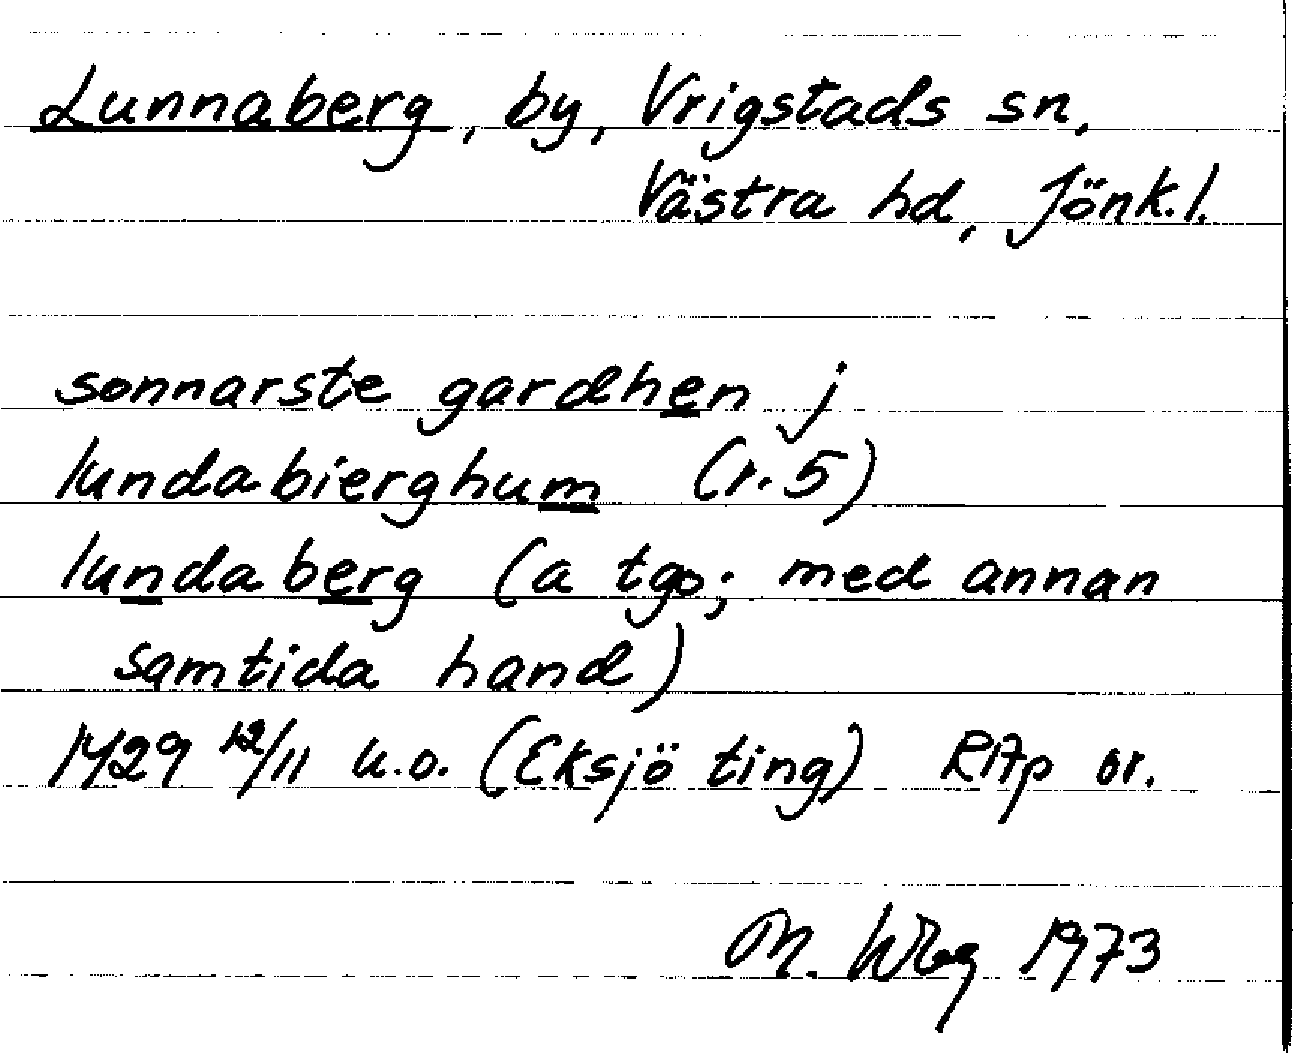 Lunnaberg, by, Vrigstads sn,
Västra hd, Jönk.l.
sonnarste gardhen j
lundabierghum (r. 5)
lundaberg (a tgo; med annan
samtida hand)
1429 12/11 u.o. (Eksjö ting) RAp or.
M. Wbg 1973